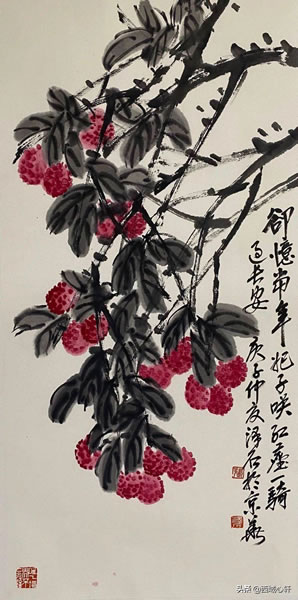 卻憶當年妃子咲紅塵一騎
過長安
庚子仲夏澤石於京華
头条 @西域心轩